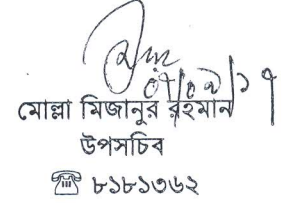 মোল্লা মিজানুর রহমান
উপসচিব
☎ ৮১৮১৩৬২